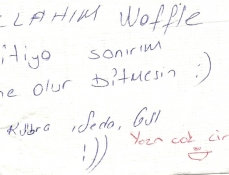 LLAHIM Waffle
itiyo sanırım
ne olur Bitmesin :)
Kübra, Seda, Gül
:)) Yazın çok çir